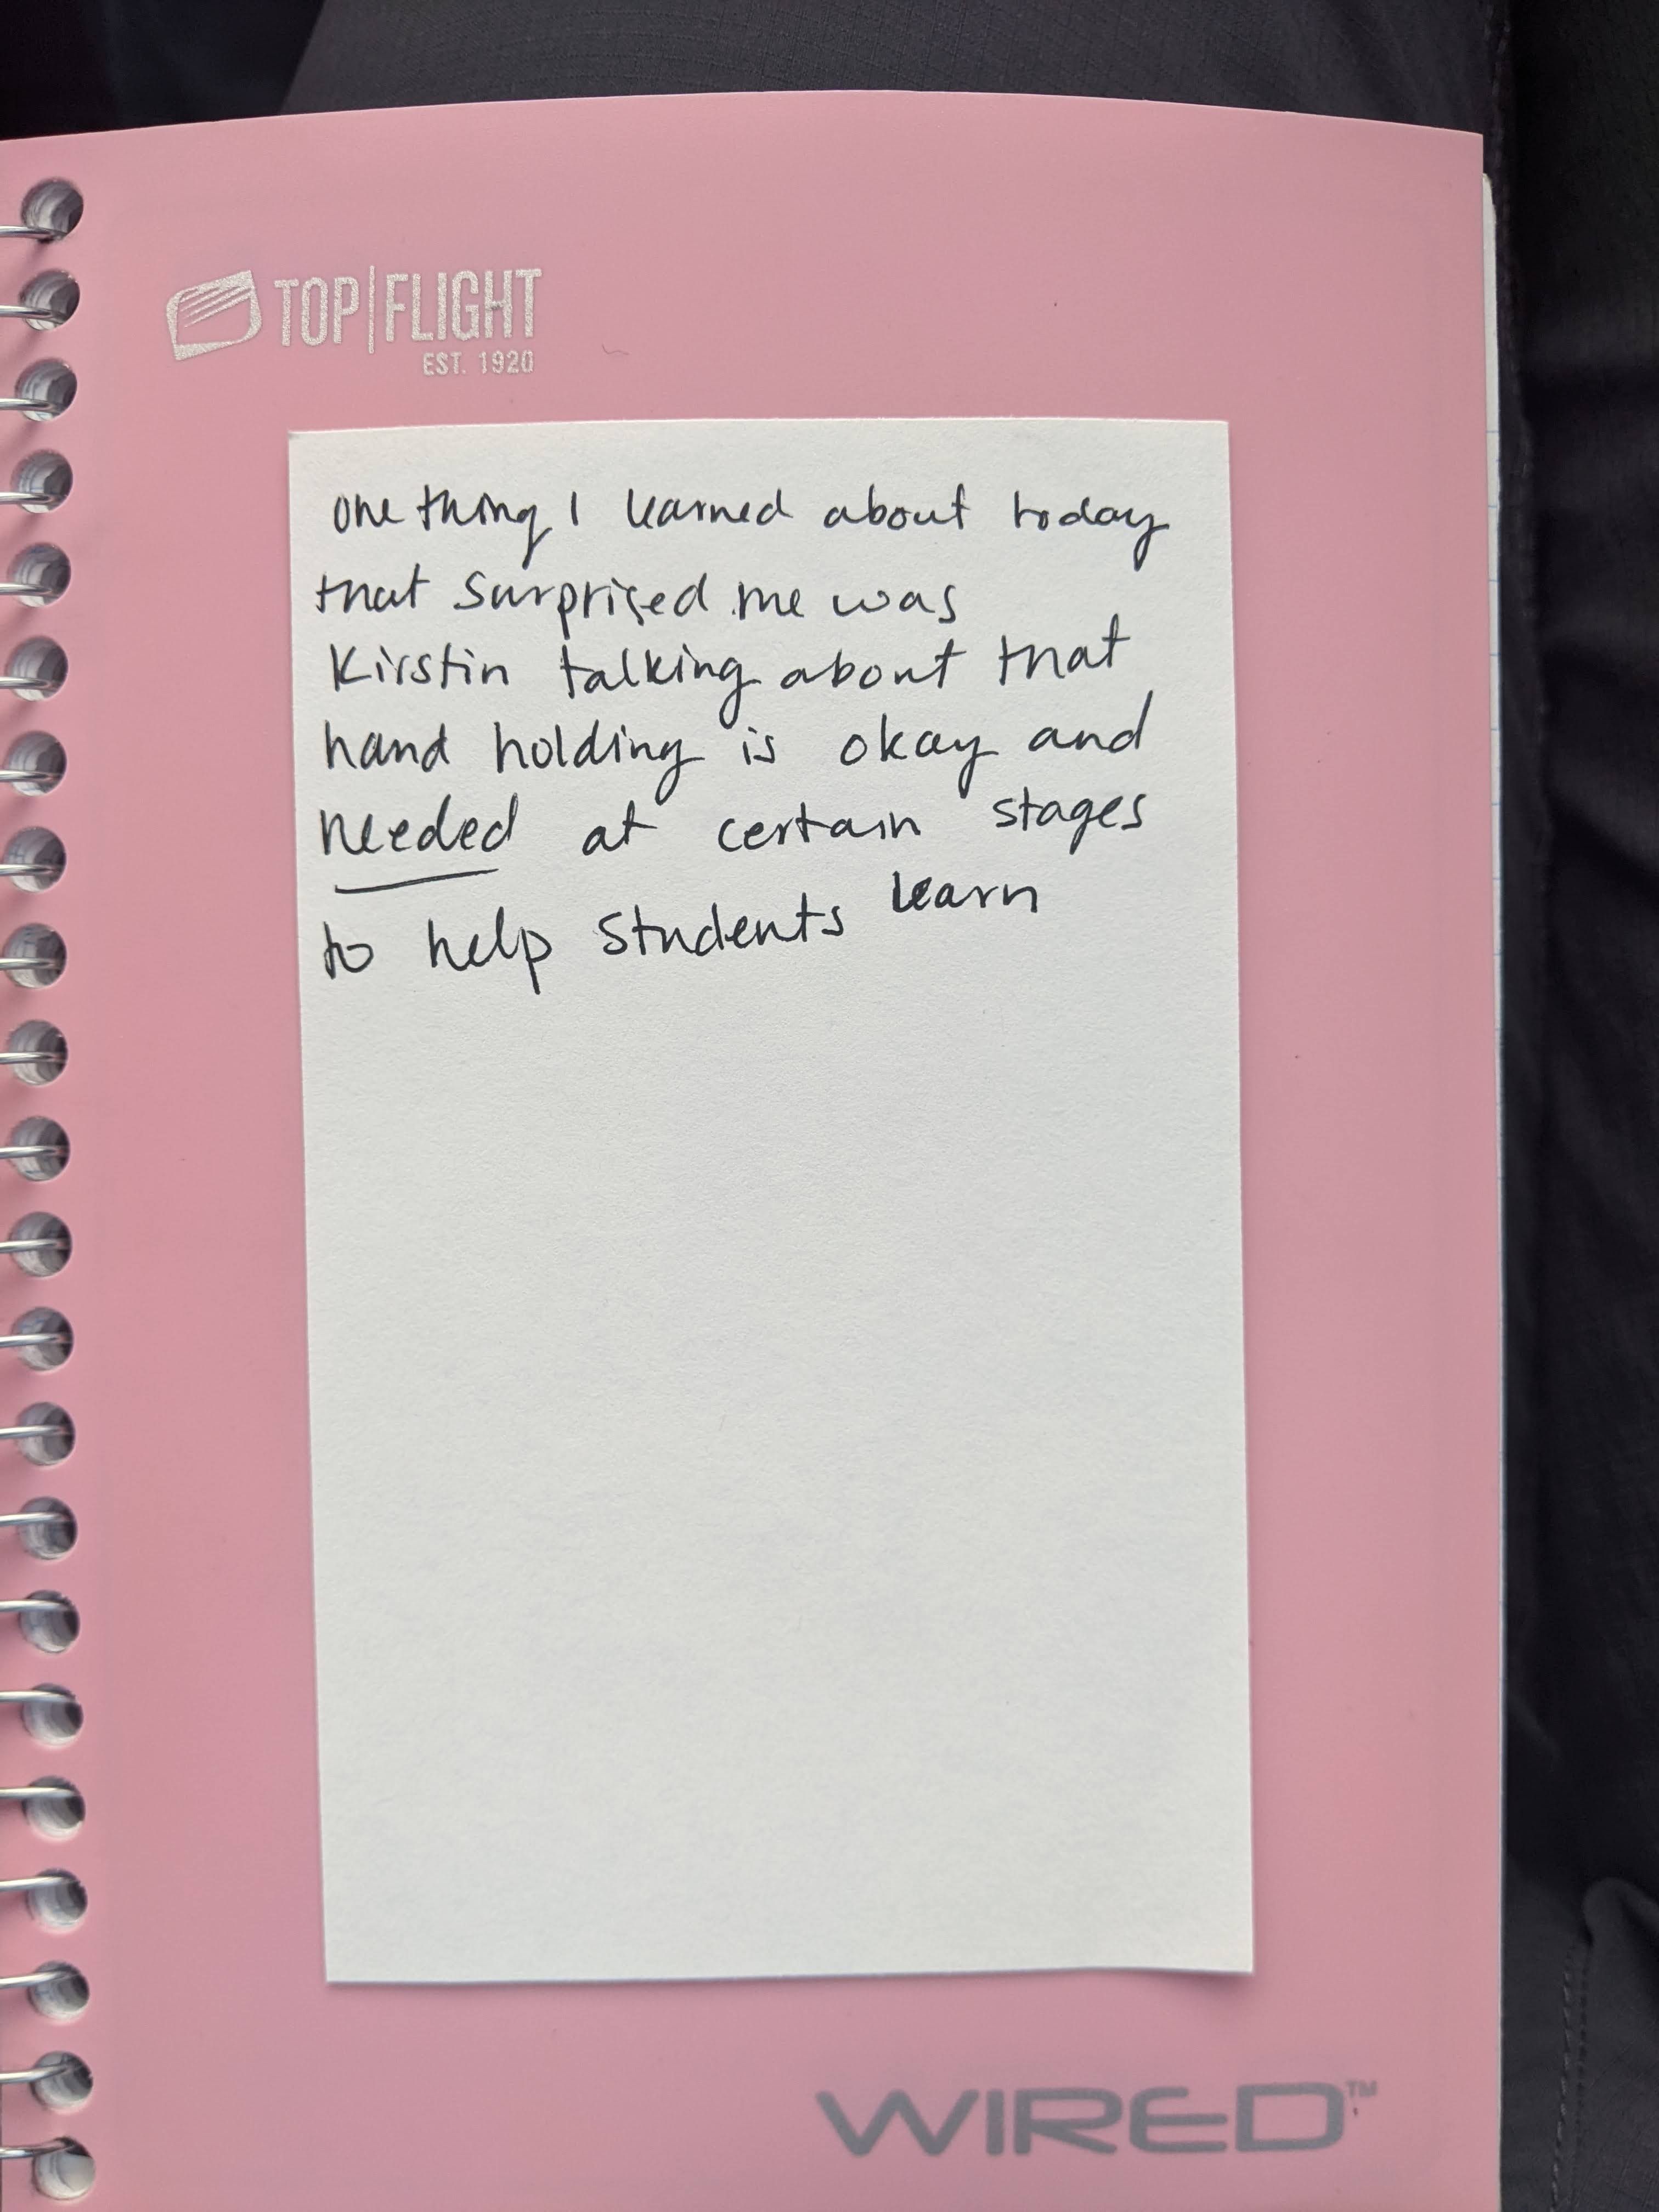 TOP|FLIGHT
EST. 1920
one thing I learned about today
that surprised me was
Kirstin talking about that
hand holding is okay and
needed at certain stages
to help students learn
WIRED™